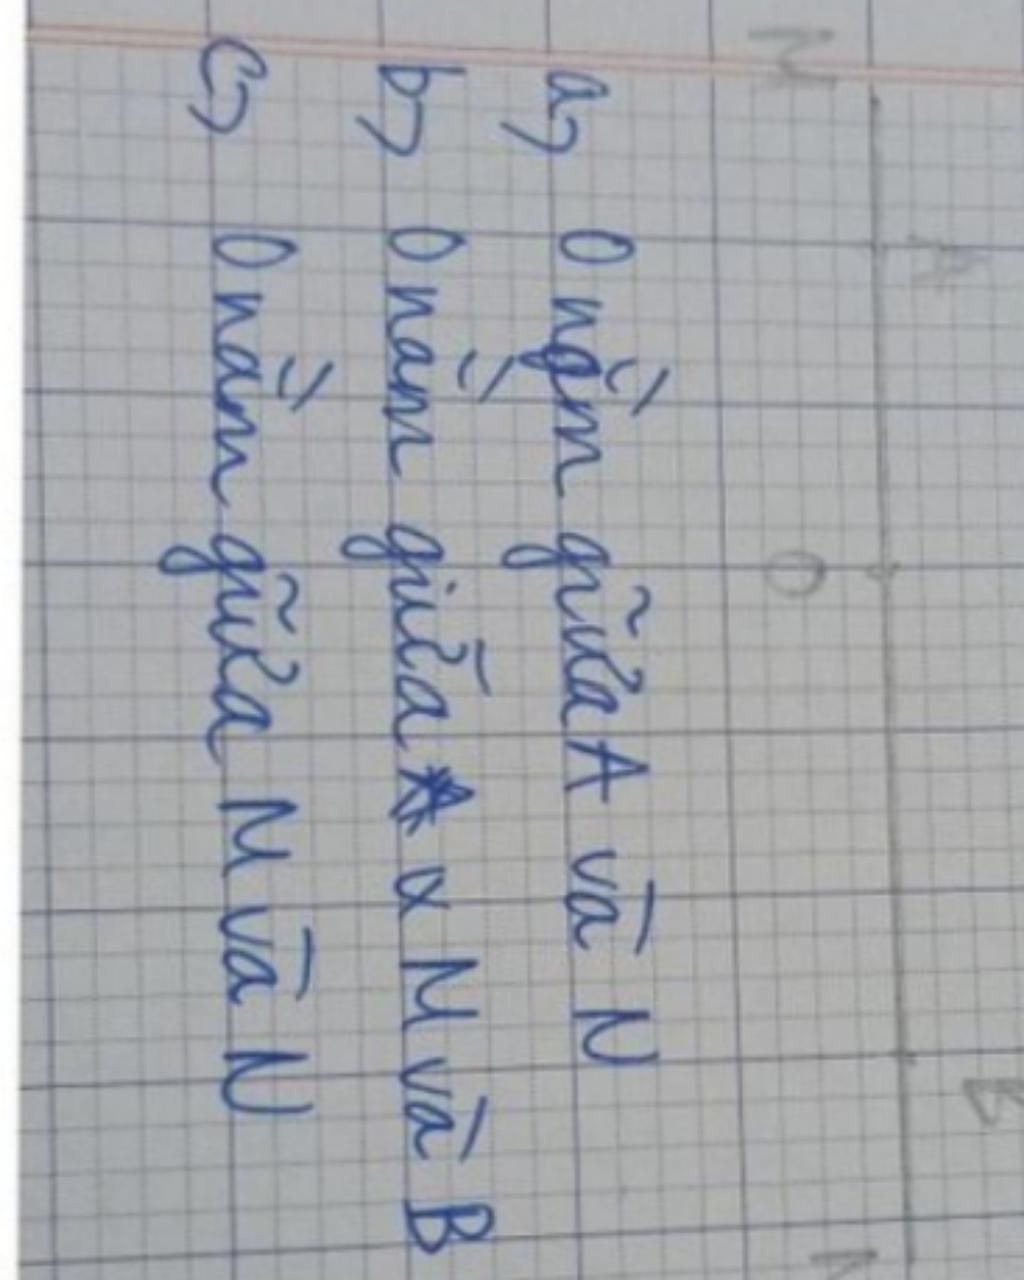 M A O B
a) O nằm giữa A và N
b) O nằm giữa M và B
c) O nằm giữa M và N